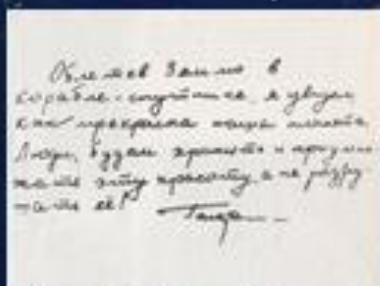 Облетев Землю в
корабле-спутнике, я увидел,
как прекрасна наша планета.
Люди, будем хранить и преумно-
жать эту красоту, а не разру-
шать её!
Гагарин